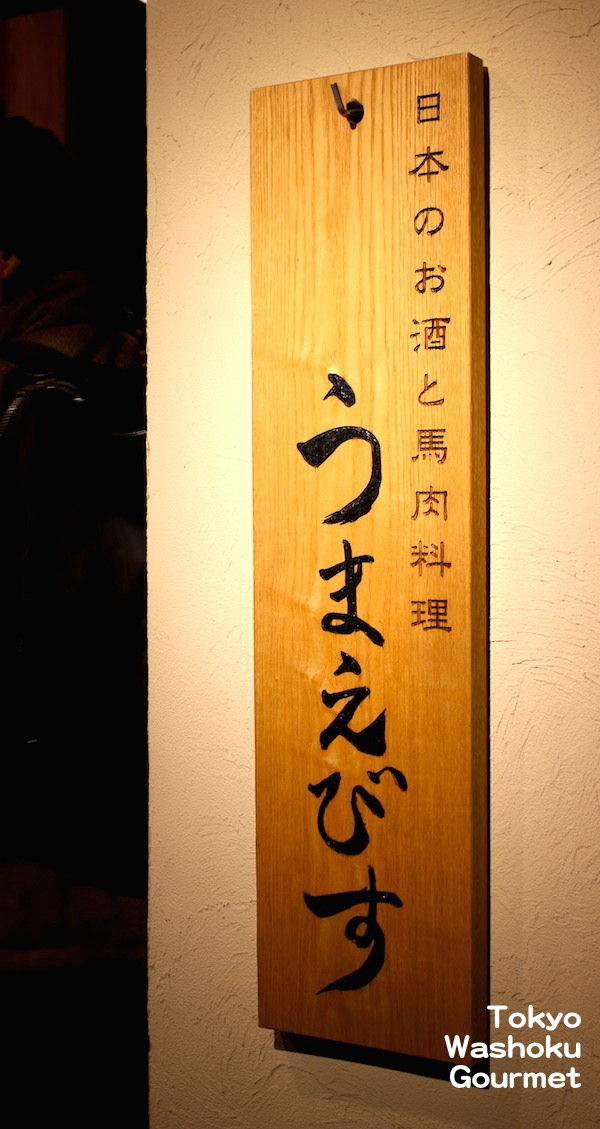 日本のお酒と馬肉料理
うまえびす
Tokyo
Washoku
Gourmet